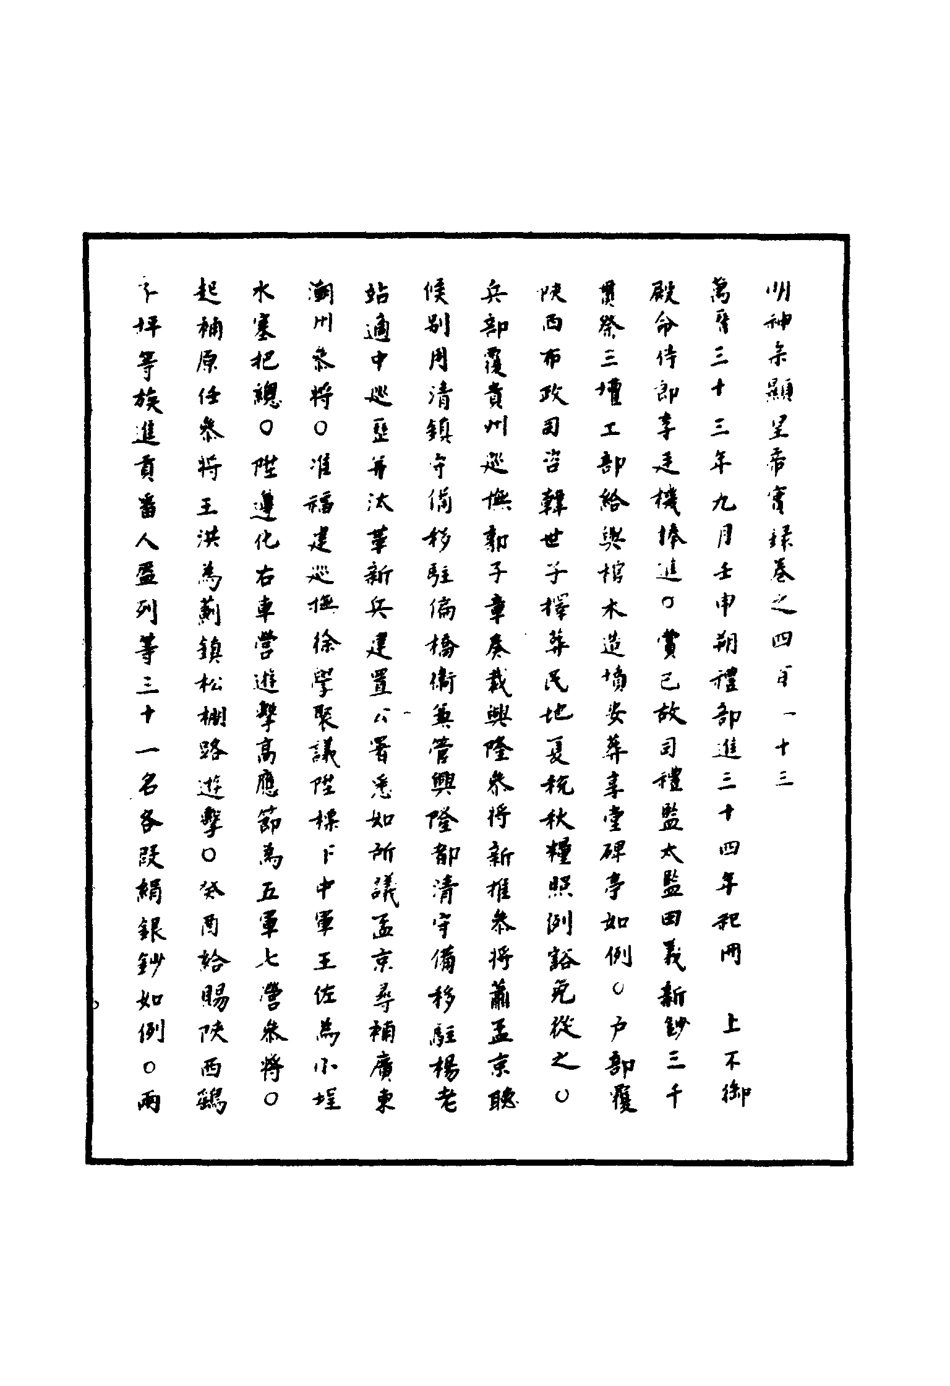 明神宗顯皇帝實錄卷之四百一十三
萬曆三十三年九月壬申朔禮部進三十四年祀冊　上不御
殿命侍郎李廷機捧進○賞已故司禮監太監田義新鈔三千
貫祭三壇工部給與棺木造墳安葬享堂碑亭如例○戶部覆
陝西布政司咨韓世子擇葬民地夏稅秋糧照例豁免從之○
兵部覆貴州巡撫郭子章奏裁興隆叅將新推叅將蕭孟京聽
候別用清鎮守備移駐偏橋衛兼管興隆都清守備移駐楊老
站適中巡歷并汰革新兵建置公署悉如所議孟京尋補廣東
潮州叅將○准福建巡撫徐學聚議陞標下中軍王佐為小埕
水寨把總○陞遵化右車營遊擊高應節為五軍七營叅將○
起補原任叅將王洪為薊鎮松棚路遊擊○癸酉給賜陝西鷄
子坪等族進貢番人盈列等三十一名各叚絹銀鈔如例○兩